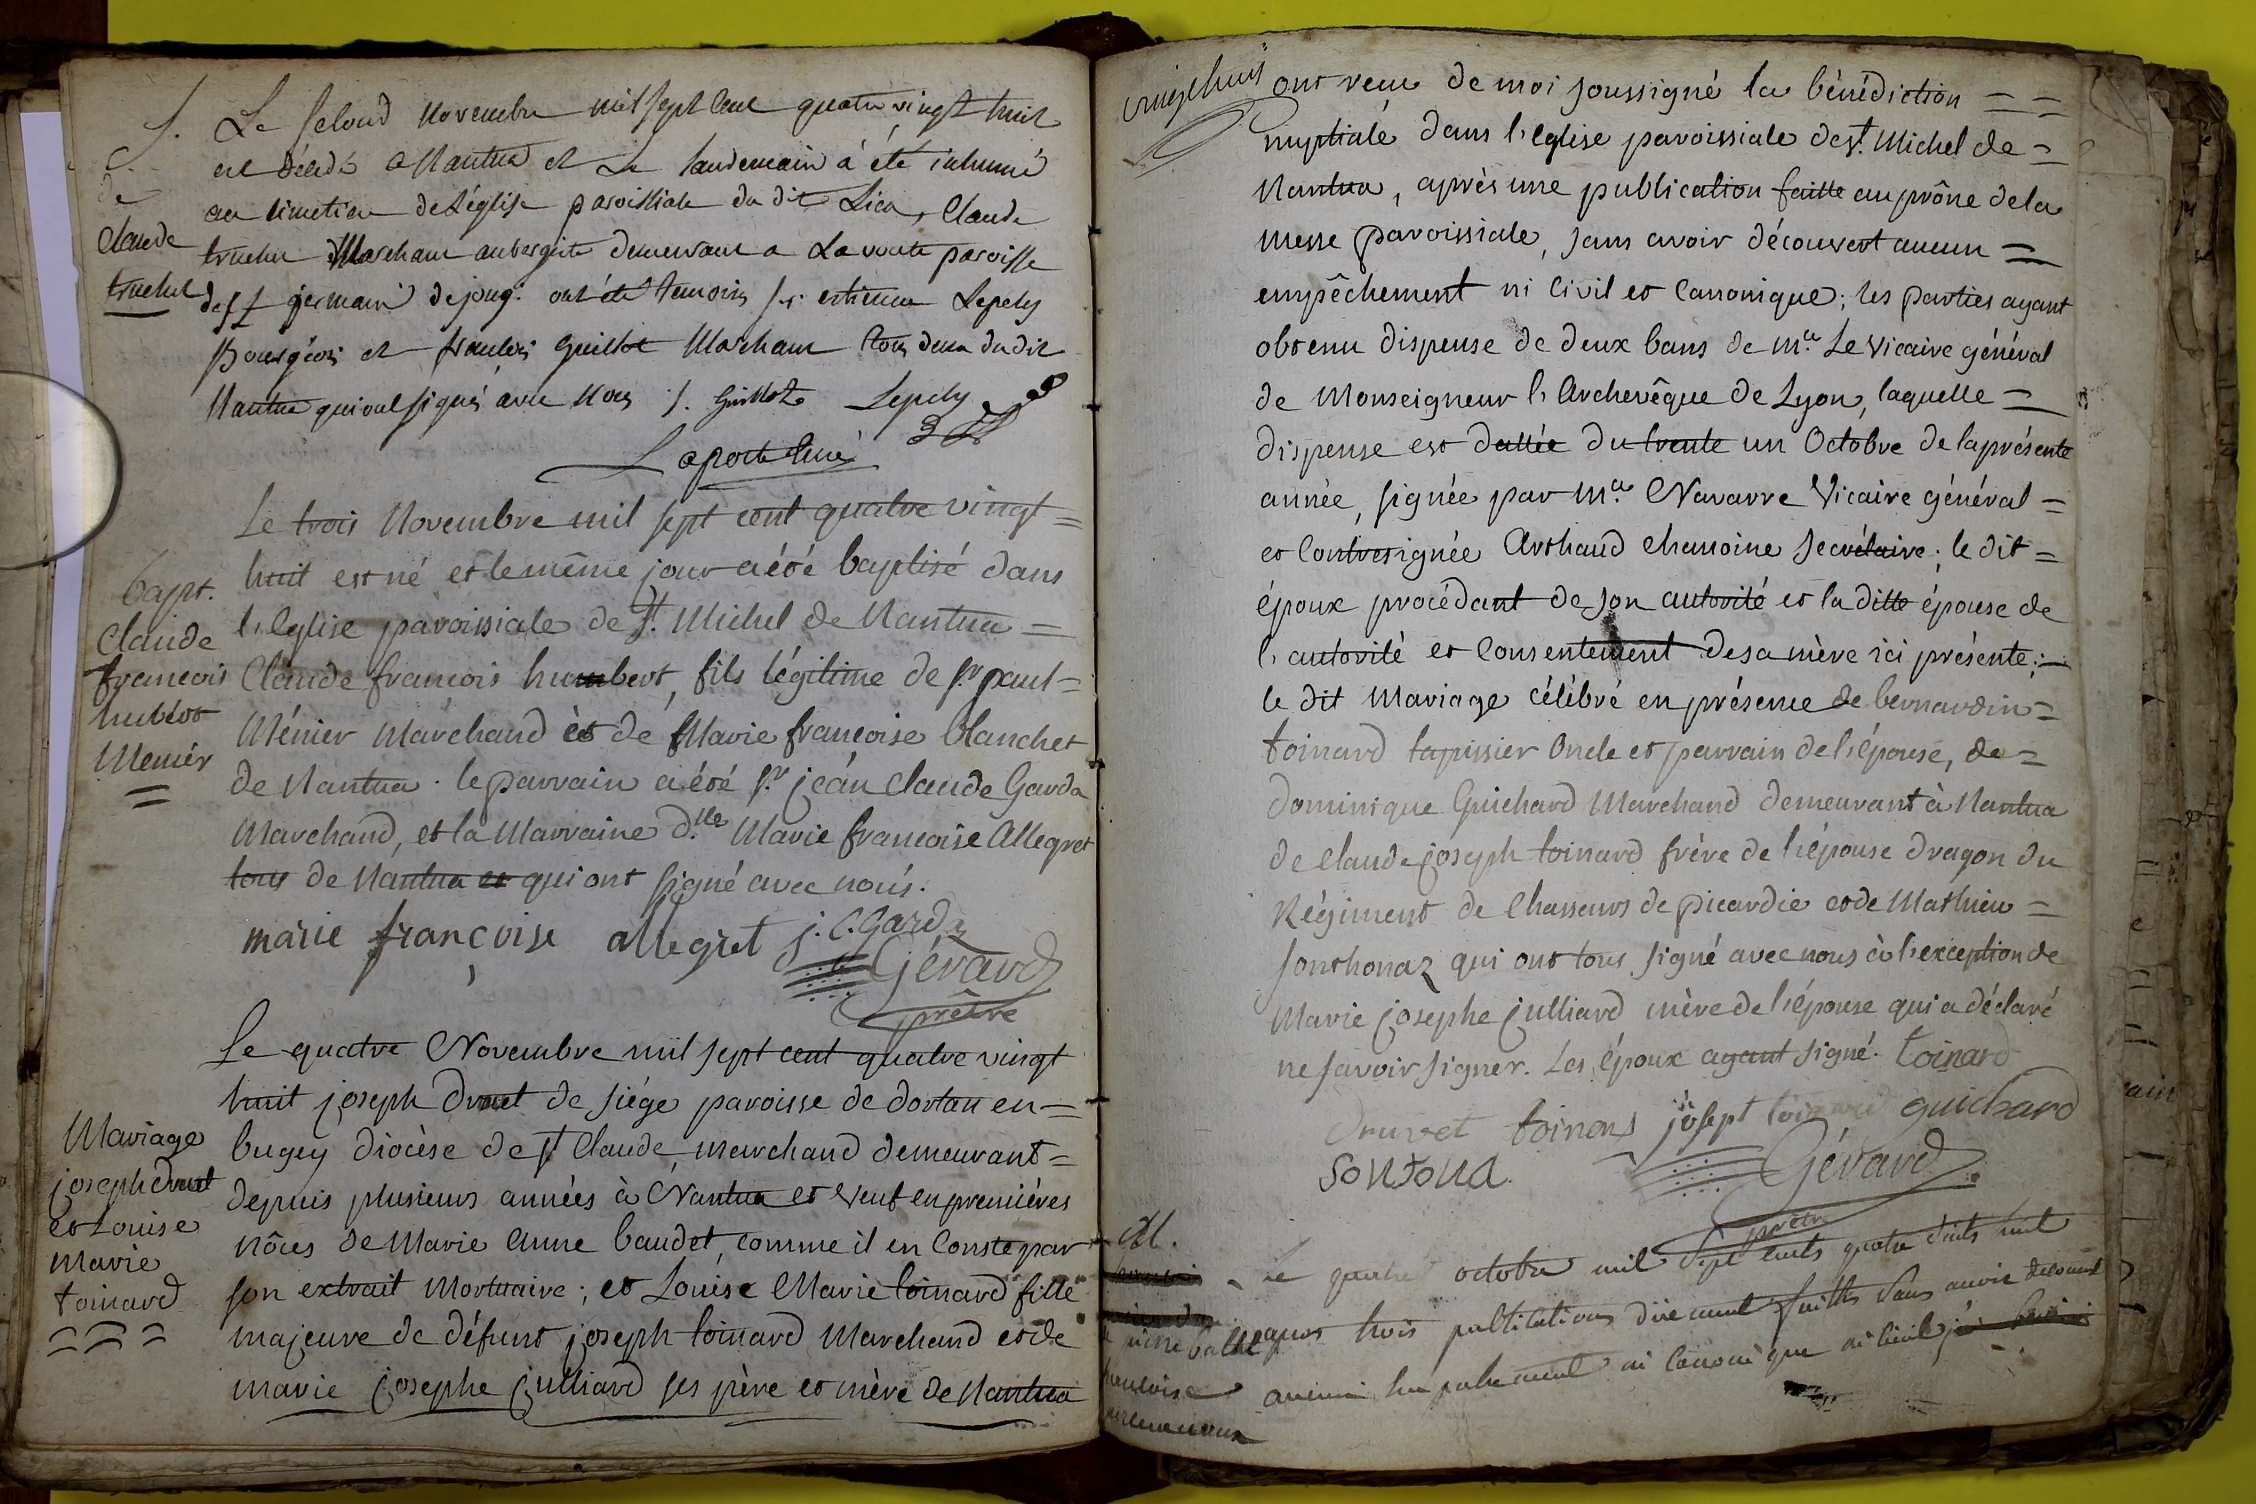 S.
de
Claude
truchet
Le second novembre mil sept cent quatre vingt huit
est décédé a Nantua et le landemain a été inhumé
au cimetiere de l'église paroissiale du dit Lieu, Claude
truchet Marchant aubergiste demeurant a La voute paroisse
de st germain de joug. ont été temoins sr. estienne Lepely
Bourgéois et francois Guillot Marchant tous deux du dit
Nantua qui ont signés avec Nous f. Guillot Lepely
Laporte Curé
Bapt.
Claude
francois
humbert
Menier
=
Le trois Novembre mil sept cent quatre vingt =
huit est né et le même jour a été baptisé dans
l'Eglise paroissiale de St. Michel de Nantua =
Claude francois humbert, fils légitime de sr. paul =
Ménier Marchand et de Marie francoise blanchet
de Nantua. le parrain a été sr. jean Claude Garda
Marchand, et la Marraine d.lle Marie francoise Allegret
tous de Nantua et qui ont signé avec nous.
marie françoise allegret j. C. Garda
Gérard
prêtre
Mariage
joseph druet
et Louise
Marie
toinard
Le quatre Novembre mil sept cent quatre vingt
huit joseph druet de siége paroisse de dortan en =
bugey diocèse de st Claude, marchand demeurant =
depuis plusieurs années à Nantua et veuf en premières
nôces de Marie Anne baudet, comme il en Conste par
son extrait Mortuaire ; et Louise Marie toinard fille
majeure de défunt joseph toinard Marchand et de
marie josephe julliard ses père et mère de Nantua
vingt huit
ont recu de moi soussigné la bénédiction = =
nuptiale dans l'eglise paroissiale de st. Michel de =
Nantua, après une publication faitte au prône de la
messe paroissiale, sans avoir découvert aucun =
empêchement ni Civil et Canonique ; les parties ayant
obtenu dispense de deux bans de Mr. Le Vicaire général
de Monseigneur l'Archevêque de Lyon, laquelle =
dispense est dattée du trente un Octobre de la présente
année, signée par Mr. Navarre Vicaire général =
et Contresignée Arthaud chanoine secrétaire ; le dit =
époux procédant de son autorité et la ditte épouse de
l'autorité et Consentement de sa mère ici présente ; -
le dit Mariage célébré en présence de bernardin =
toinard tapissier Oncle et parrain de l'épouse, de =
dominique Guichard Marchand demeurant à Nantua
de claude joseph toinard frère de l'épouse dragon du
Régiment de Chasseurs de picardie et de Mathieu =
sonthonaz qui ont tous signé avec nous à l'exception de
Marie josephe julliard mère de l'épouse qui a déclaré
ne savoir signer. Les époux ayant signé. toinard
Druet toinard josept toinard guichard
Sontona. Gérard
prêtre
M.
Le quatre octobre mil sept cents quatre vints huit
apres trois publications duement faittes sans avoir decouvert
aucun empechement ni canonique ni civil